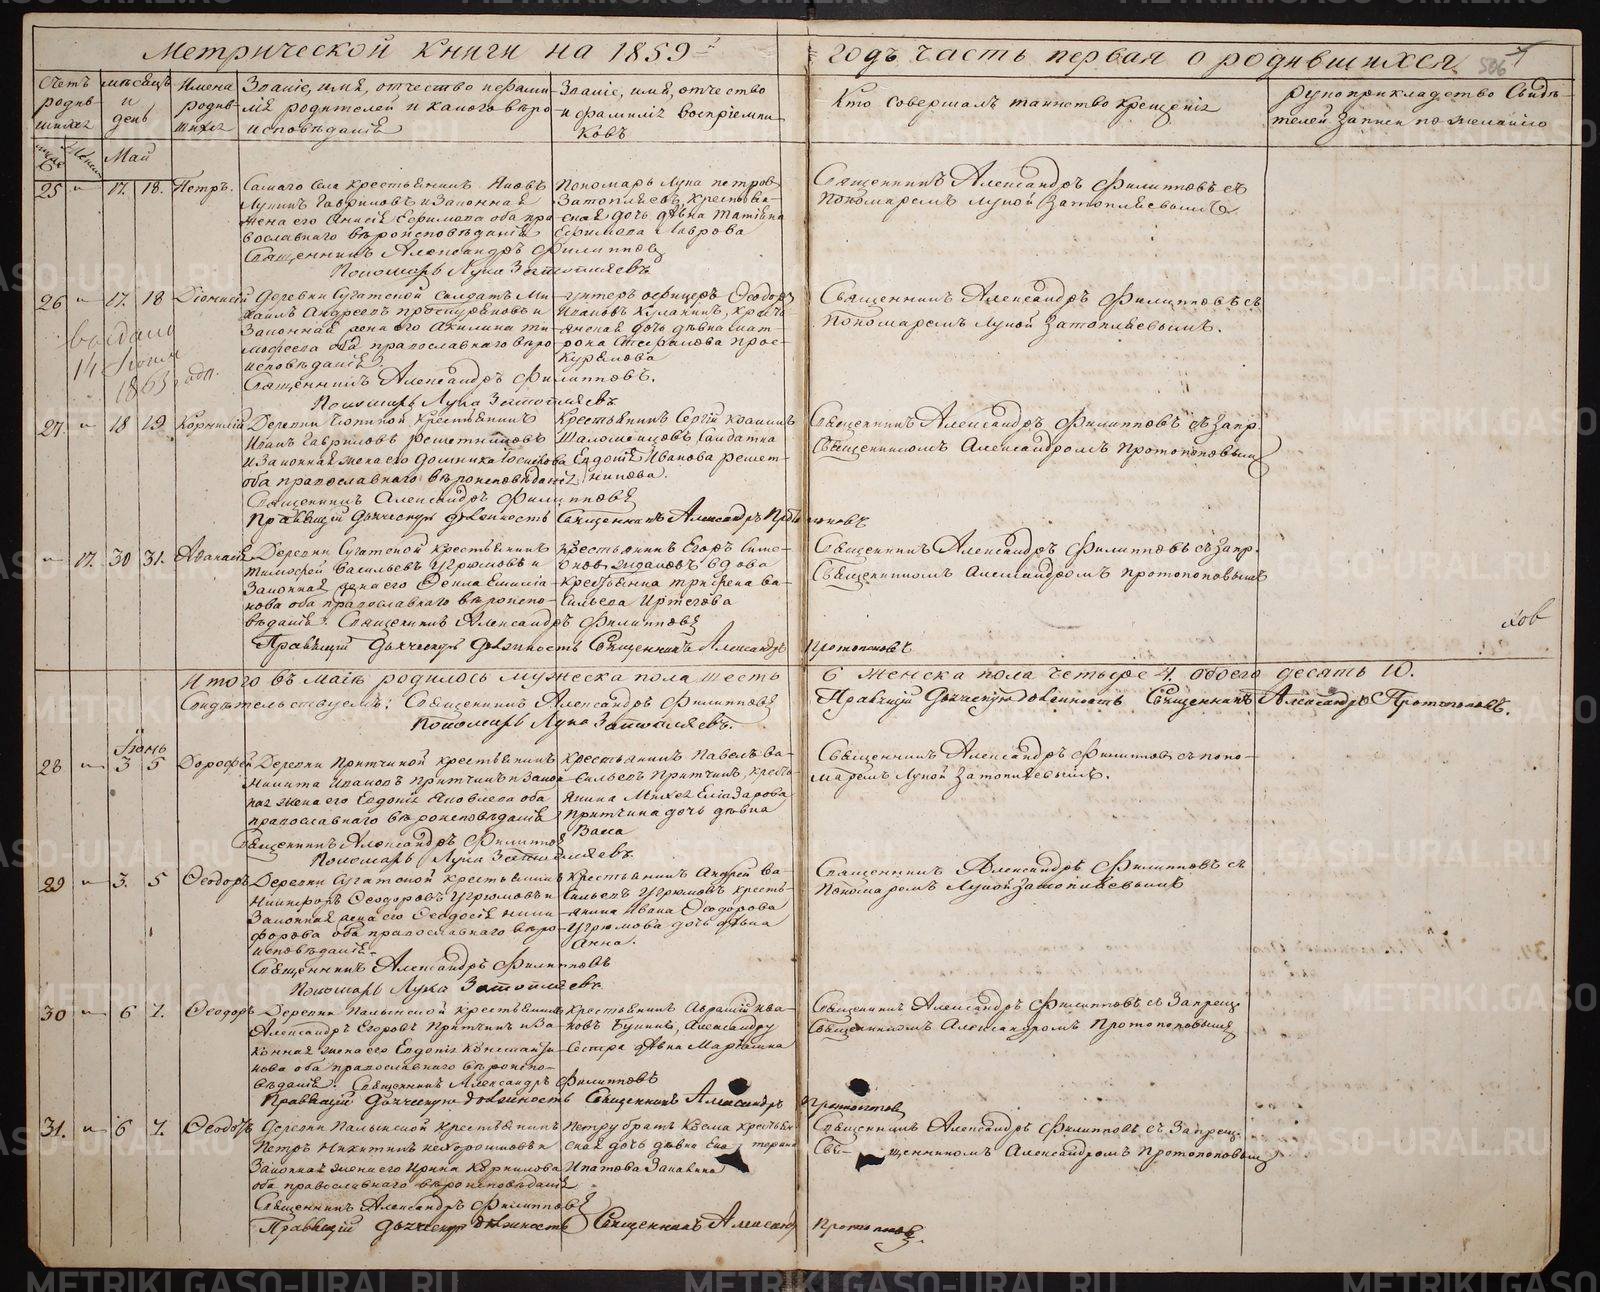 Метрической книги на 1859 й
годъ часть первая о родившихся
506
Счетъ родив-шихся
мѣсяцъ и день
Имена родив-шихся
Званіе, имя, отчество и фами-
лія родителей и какого вѣро
исповѣданія
Званіе, имя, отчество
и фамилія воспріемни
ковъ
Кто совершалъ таинство крещенія
Рукоприкладство Свидѣ-
телей записи по желанію
Май
25 " 17. 18. Петръ.
Самаго села крестьянинъ Яковъ
Лукинъ Гавриловъ и Законная
жена его Анисія Ефимова оба пра
вославнаго вѣроисповѣданія
Священникъ Александръ Филипповъ
Пономарь Лука Затопляевъ
Пономарь Лука Петров
Затопляевъ, крестьян-
ская дочь дѣвка Татіяна
Ефимова Лаврова
Священникъ Александръ Филипповъ съ
Пономаремъ Лукой Затопляевымъ
26 " 17. 18 Діонисій
Деревни Сугатской солдатъ Ми-
хаилъ Андреевъ Проскуряковъ и
Законная жена его Акилина Ти-
мофеева оба православнаго вѣро
исповѣданія
Священникъ Александръ Филипповъ.
Пономарь Лука Затопляевъ
унтеръ офицеръ Ѳеодоръ
Ивановъ Кулакинъ, кресть
янская дочь дѣвка Мат-
рона Стефанова Прос-
курякова
Священникъ Александръ Филипповъ съ
Пономаремъ Лукой Затопляевымъ.
выдано
14 Іюня
1863 года.
27. " 18 19 Корнилій
Иванъ Гавриловъ Решетниковъ
и Законная жена его Домника Іосифова
оба православнаго вѣроисповѣданія
Священникъ Александръ Филипповъ
Правящій Дьяческую должность Священникъ Александръ Протопоповъ
Крестьянинъ Сергій
Солдатка
Евдокія Иванова Решет-
никова.
Священникъ Александръ Филипповъ съ Запр.
Священникомъ Александромъ Протопоповымъ
" 17. 30 31. Аѳанасія
Деревни Сугатской крестьянинъ
Тимофей Васильевъ Угрюмовъ и
Законная жена его Ѳекла
нова оба православнаго вѣроиспо-
вѣданія. Священникъ Александръ Филипповъ
Правящій Дьяческую должность Священникъ Александръ Протопоповъ
Крестьянинъ Егоръ Симе-
оновъ Ждановъ вдова
Крестьянка Трифена Ва-
сильева Иртегова
Священникъ Александръ Филипповъ съ Запр.
Священникомъ Александромъ Протопоповымъ
ков
Итого въ маіѣ родилось мужеска пола шесть
6 женска пола четыре 4. обоего десять 10.
Свидѣтельствуемъ: Священникъ Александръ Филипповъ
Правящій Дьяческую должность Священникъ Александръ Протопоповъ.
Пономарь Лука Затопляевъ.
Іюнь
28 " 3 5 Дорофей
Деревни Притчиной крестьянинъ
Никита Ивановъ Притчинъ и Закон
ная жена его Евдокія Яковлева оба
православнаго вѣроисповѣданія
Священникъ Александръ Филипповъ
Пономарь Лука Затопляевъ
Крестьянинъ Павелъ Ва-
сильевъ Притчинъ, кресть
янина Михея Еліазарова
Притчина дочь дѣвка
Васса
Священникъ Александръ Филипповъ съ поно-
маремъ Лукой Затопляевымъ.
29 " 3. 5 Ѳеодоръ
Деревни Сугатской крестьянинъ
Никифоръ Ѳеодоровъ Угрюмовъ и
Законная жена его Ѳеодосія Ники-
форова оба православнаго вѣро-
исповѣданія.
Священникъ Александръ Филипповъ
Пономарь Лука Затопляевъ
Крестьянинъ Андрей Ва-
сильевъ Угрюмовъ кресть-
янина Ивана Ѳеодорова
Угрюмова дочь дѣвка
Анна.
Священникъ Александръ Филипповъ съ
Пономаремъ Лукой Затопляевымъ
30 " 6 7. Ѳеодоръ
Деревни Палкинской крестьянинъ
Александръ Егоровъ Притчинъ и За-
конная жена его Евдокія Константи-
нова оба православнаго вѣроиспо-
вѣданія. Священникъ Александръ Филипповъ
Правящій Дьяческую должность Священникъ Александръ Протопоповъ
Крестьянинъ Авраамій Ива-
новъ Букинъ, Александру
сестра дѣвка Маріамна
Священникъ Александръ Филипповъ съ Запрещ.
Священникомъ Александромъ Протопоповымъ
31. " 6 7. Ѳеодотъ
Деревни Палкинской крестьянинъ
Петръ Никитинъ Нехорошковъ и
Законная жена его Ирина Корнилова
оба православнаго вѣроисповѣданія
Священникъ Александръ Филипповъ
Правящій Дьяческую должность Священникъ Александръ Протопоповъ
Петру братъ Козма крестьян
ская дочь дѣвка Екатерина
Ипатова
Священникъ Александръ Филипповъ съ Запрещ.
Священникомъ Александромъ Протопоповымъ
METRIKI.GASO-URAL.RU